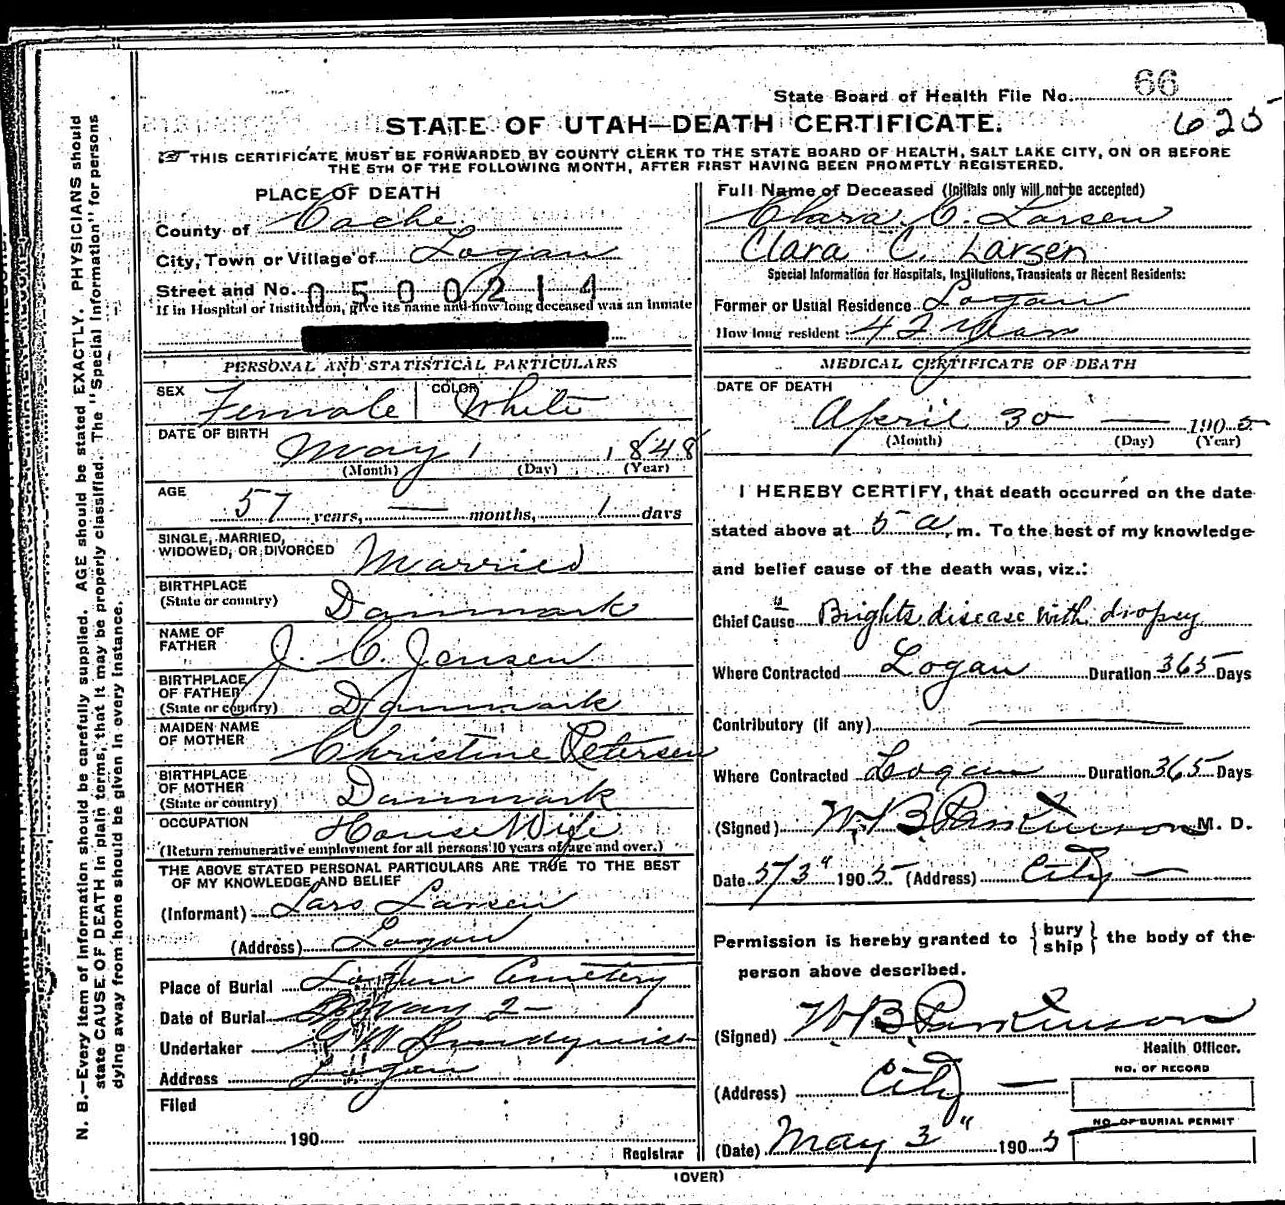 State Board of Health File No. 66
625
STATE OF UTAH—DEATH CERTIFICATE.
THIS CERTIFICATE MUST BE FORWARDED BY COUNTY CLERK TO THE STATE BOARD OF HEALTH, SALT LAKE CITY, ON OR BEFORE
THE 5TH OF THE FOLLOWING MONTH, AFTER FIRST HAVING BEEN PROMPTLY REGISTERED.
PLACE OF DEATH
County of Cache
City, Town or Village of Logan
Street and No. 0500214
If in Hospital or Institution, give its name and how long deceased was an inmate
PERSONAL AND STATISTICAL PARTICULARS
SEX Female COLOR White
DATE OF BIRTH
May 1, 1848
(Month) (Day) (Year)
AGE
57 years, — months, 1 days
SINGLE, MARRIED,
WIDOWED, OR DIVORCED Married
BIRTHPLACE
(State or country) Danmark
NAME OF
FATHER J. C. Jensen
BIRTHPLACE
OF FATHER
(State or country) Danmark
MAIDEN NAME
OF MOTHER Christine Petersen
BIRTHPLACE
OF MOTHER
(State or country) Danmark
OCCUPATION House Wife
(Return remunerative employment for all persons 10 years of age and over.)
THE ABOVE STATED PERSONAL PARTICULARS ARE TRUE TO THE BEST
OF MY KNOWLEDGE AND BELIEF
(Informant) Lars Larsen
(Address) Logan
Place of Burial Logan Cemetery
Date of Burial May 2
Undertaker Lundquist
Address Logan
Filed
190
Registrar
Full Name of Deceased (Initials only will not be accepted)
Clara C. Larsen
Clara C. Larsen
Special Information for Hospitals, Institutions, Transients or Recent Residents:
Former or Usual Residence Logan
How long resident 42 Years
MEDICAL CERTIFICATE OF DEATH
DATE OF DEATH
April 30 — 1905
(Month) (Day) (Year)
I HEREBY CERTIFY, that death occurred on the date
stated above at 5 a. m. To the best of my knowledge
and belief cause of the death was, viz.:
Chief Cause Brights disease with dropsey
Where Contracted Logan Duration 365 Days
Contributory (if any) —
Where Contracted Logan Duration 365 Days
(Signed) W. B. Parkinson M. D.
Date 5/3" 1905 (Address) City —
Permission is hereby granted to {bury
ship} the body of the
person above described.
(Signed) W B Parkinson
Health Officer.
(Address) City —
NO. OF RECORD
NO. OF BURIAL PERMIT
(Date) May 3" 1905
(OVER)
N. B.—Every item of information should be carefully supplied. AGE should be stated EXACTLY. PHYSICIANS should
state CAUSE OF DEATH in plain terms, that it may be properly classified. The "Special Information" for persons
dying away from home should be given in every instance.